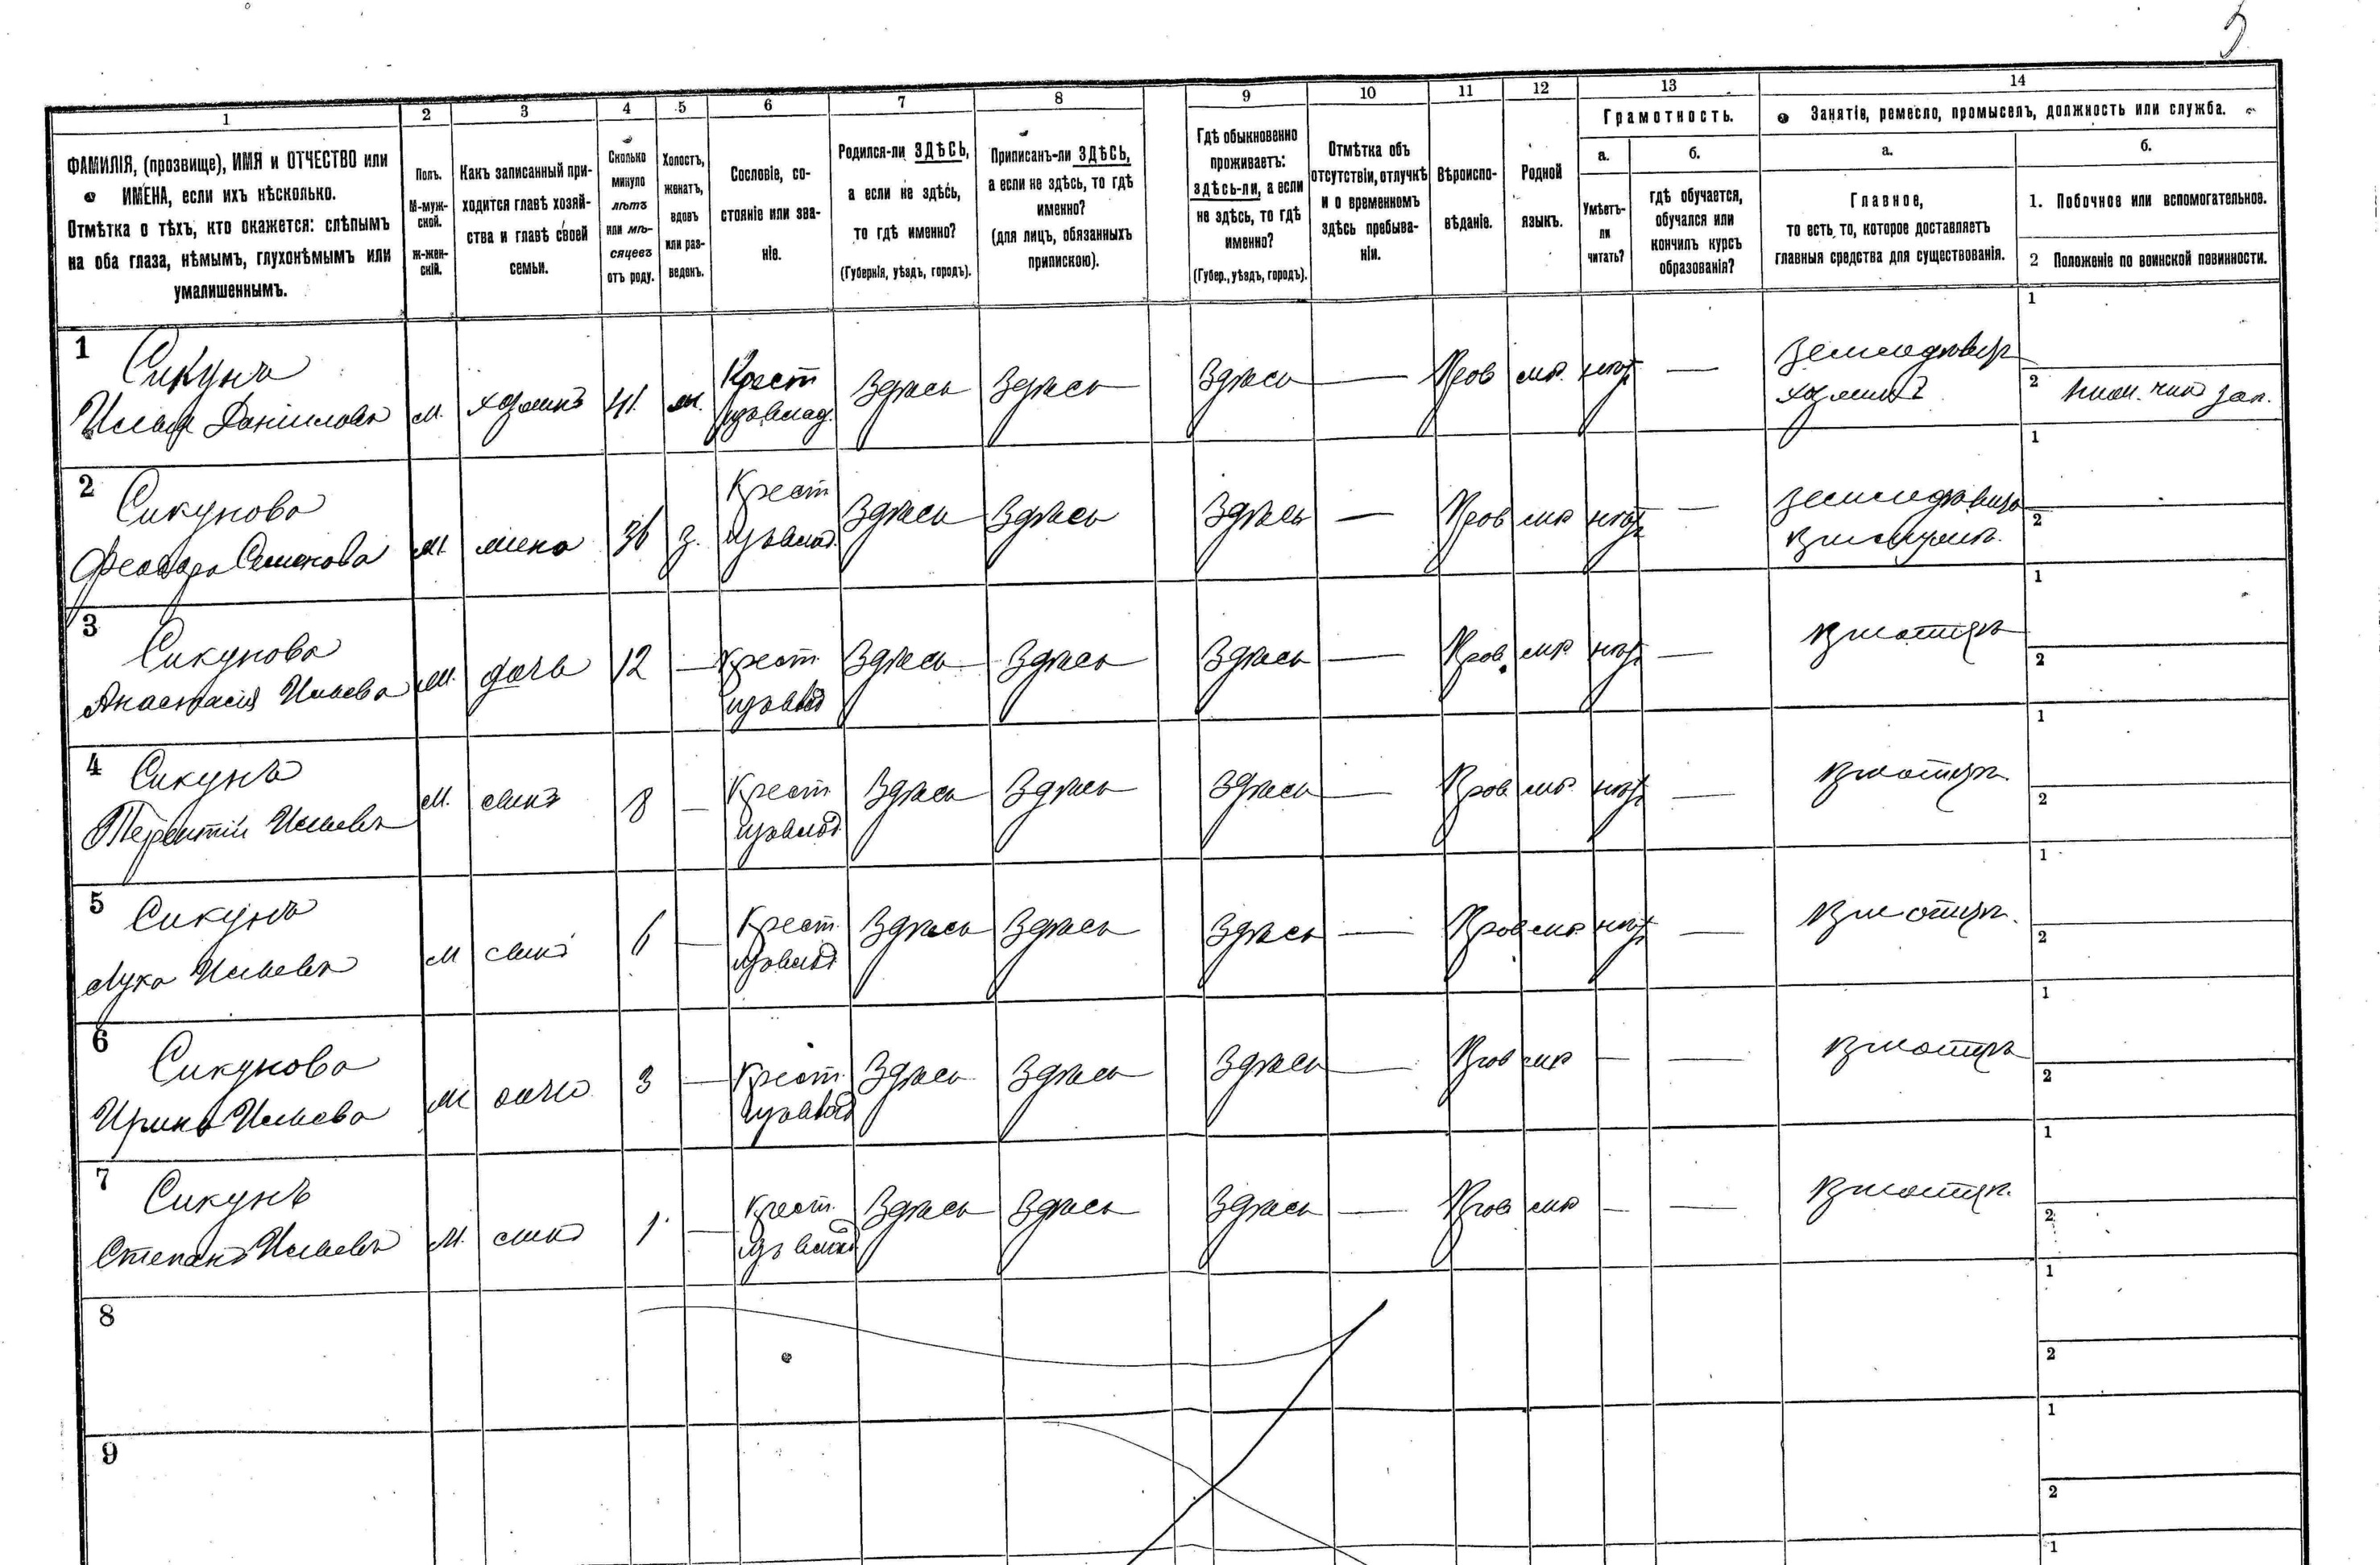 5
1
2
3
4
5
6
7
8
9
10
11
12
13
14
ФАМИЛІЯ, (прозвище), ИМЯ и ОТЧЕСТВО или
ИМЕНА, если ихъ нѣсколько.
Отмѣтка о тѣхъ, кто окажется: слѣпымъ
на оба глаза, нѣмымъ, глухонѣмымъ или
умалишеннымъ.
Полъ.
М-муж-
ской.
ж-жен-
скій.
Какъ записанный при-
ходится главѣ хозяй-
ства и главѣ своей
семьи.
Сколько
минуло
лѣтъ
или мѣ-
сяцевъ
отъ роду.
Холостъ,
женатъ,
вдовъ
или раз-
веденъ.
Сословіе, со-
стояніе или зва-
ніе.
Родился-ли ЗДѢСЬ,
а если не здѣсь,
то гдѣ именно?
(Губернія, уѣздъ, городъ).
Приписанъ-ли ЗДѢСЬ,
а если не здѣсь, то гдѣ
именно?
(для лицъ, обязанныхъ
припискою).
Гдѣ обыкновенно
проживаетъ:
здѣсь-ли, а если
не здѣсь, то гдѣ
именно?
(Губер., уѣздъ, городъ).
Отмѣтка объ
отсутствіи, отлучкѣ
и о временномъ
здѣсь пребыва-
ніи.
Вѣроиспо-
вѣданіе.
Родной
языкъ.
Грамотность.
а.
Умѣетъ-
ли
читать?
б.
гдѣ обучается,
обучался или
кончилъ курсъ
образованія?
Занятіе, ремесло, промыселъ, должность или служба.
а.
Главное,
то есть то, которое доставляетъ
главныя средства для существованія.
б.
1. Побочное или вспомогательное.
2 Положеніе по воинской повинности.
1
Сикунъ
Илья Даниловъ
м.
хозяинъ
41.
Крест
Здѣсь
Здѣсь
Здѣсь
—
Пров
мр.
нѣтъ
—
хозяинъ
1
2
зап.
2
Сикунова
Феодора Семенова
м.
жена
36
з.
Крест
Здѣсь
Здѣсь
Здѣсь
—
Пров
мр
нѣтъ
—
1
2
3
Сикунова
Анастасія Ильева
м.
дочь
12
—
Крест
Здѣсь
Здѣсь
Здѣсь
—
Пров.
мр.
нѣтъ
—
1
2
4
Сикунъ
Терентій Ильевъ
м.
сынъ
8
—
Крест
Здѣсь
Здѣсь
Здѣсь
—
Пров
мр.
нѣтъ
—
1
2
5
Сикунъ
Лука Ильевъ
м
сынъ
6
—
Крест.
Здѣсь
Здѣсь
Здѣсь
—
Пров
мр.
нѣтъ
—
1
2
6
Сикунова
Ирина Ильева
м
дочь
3
—
Крест.
Здѣсь
Здѣсь
Здѣсь
—
Пров
мр
—
—
1
2
7
Сикунъ
Степанъ Ильевъ
м.
сынъ
1
—
Крест.
Здѣсь
Здѣсь
Здѣсь
—
Пров
мр
—
—
1
2
8
1
2
9
1
2
1